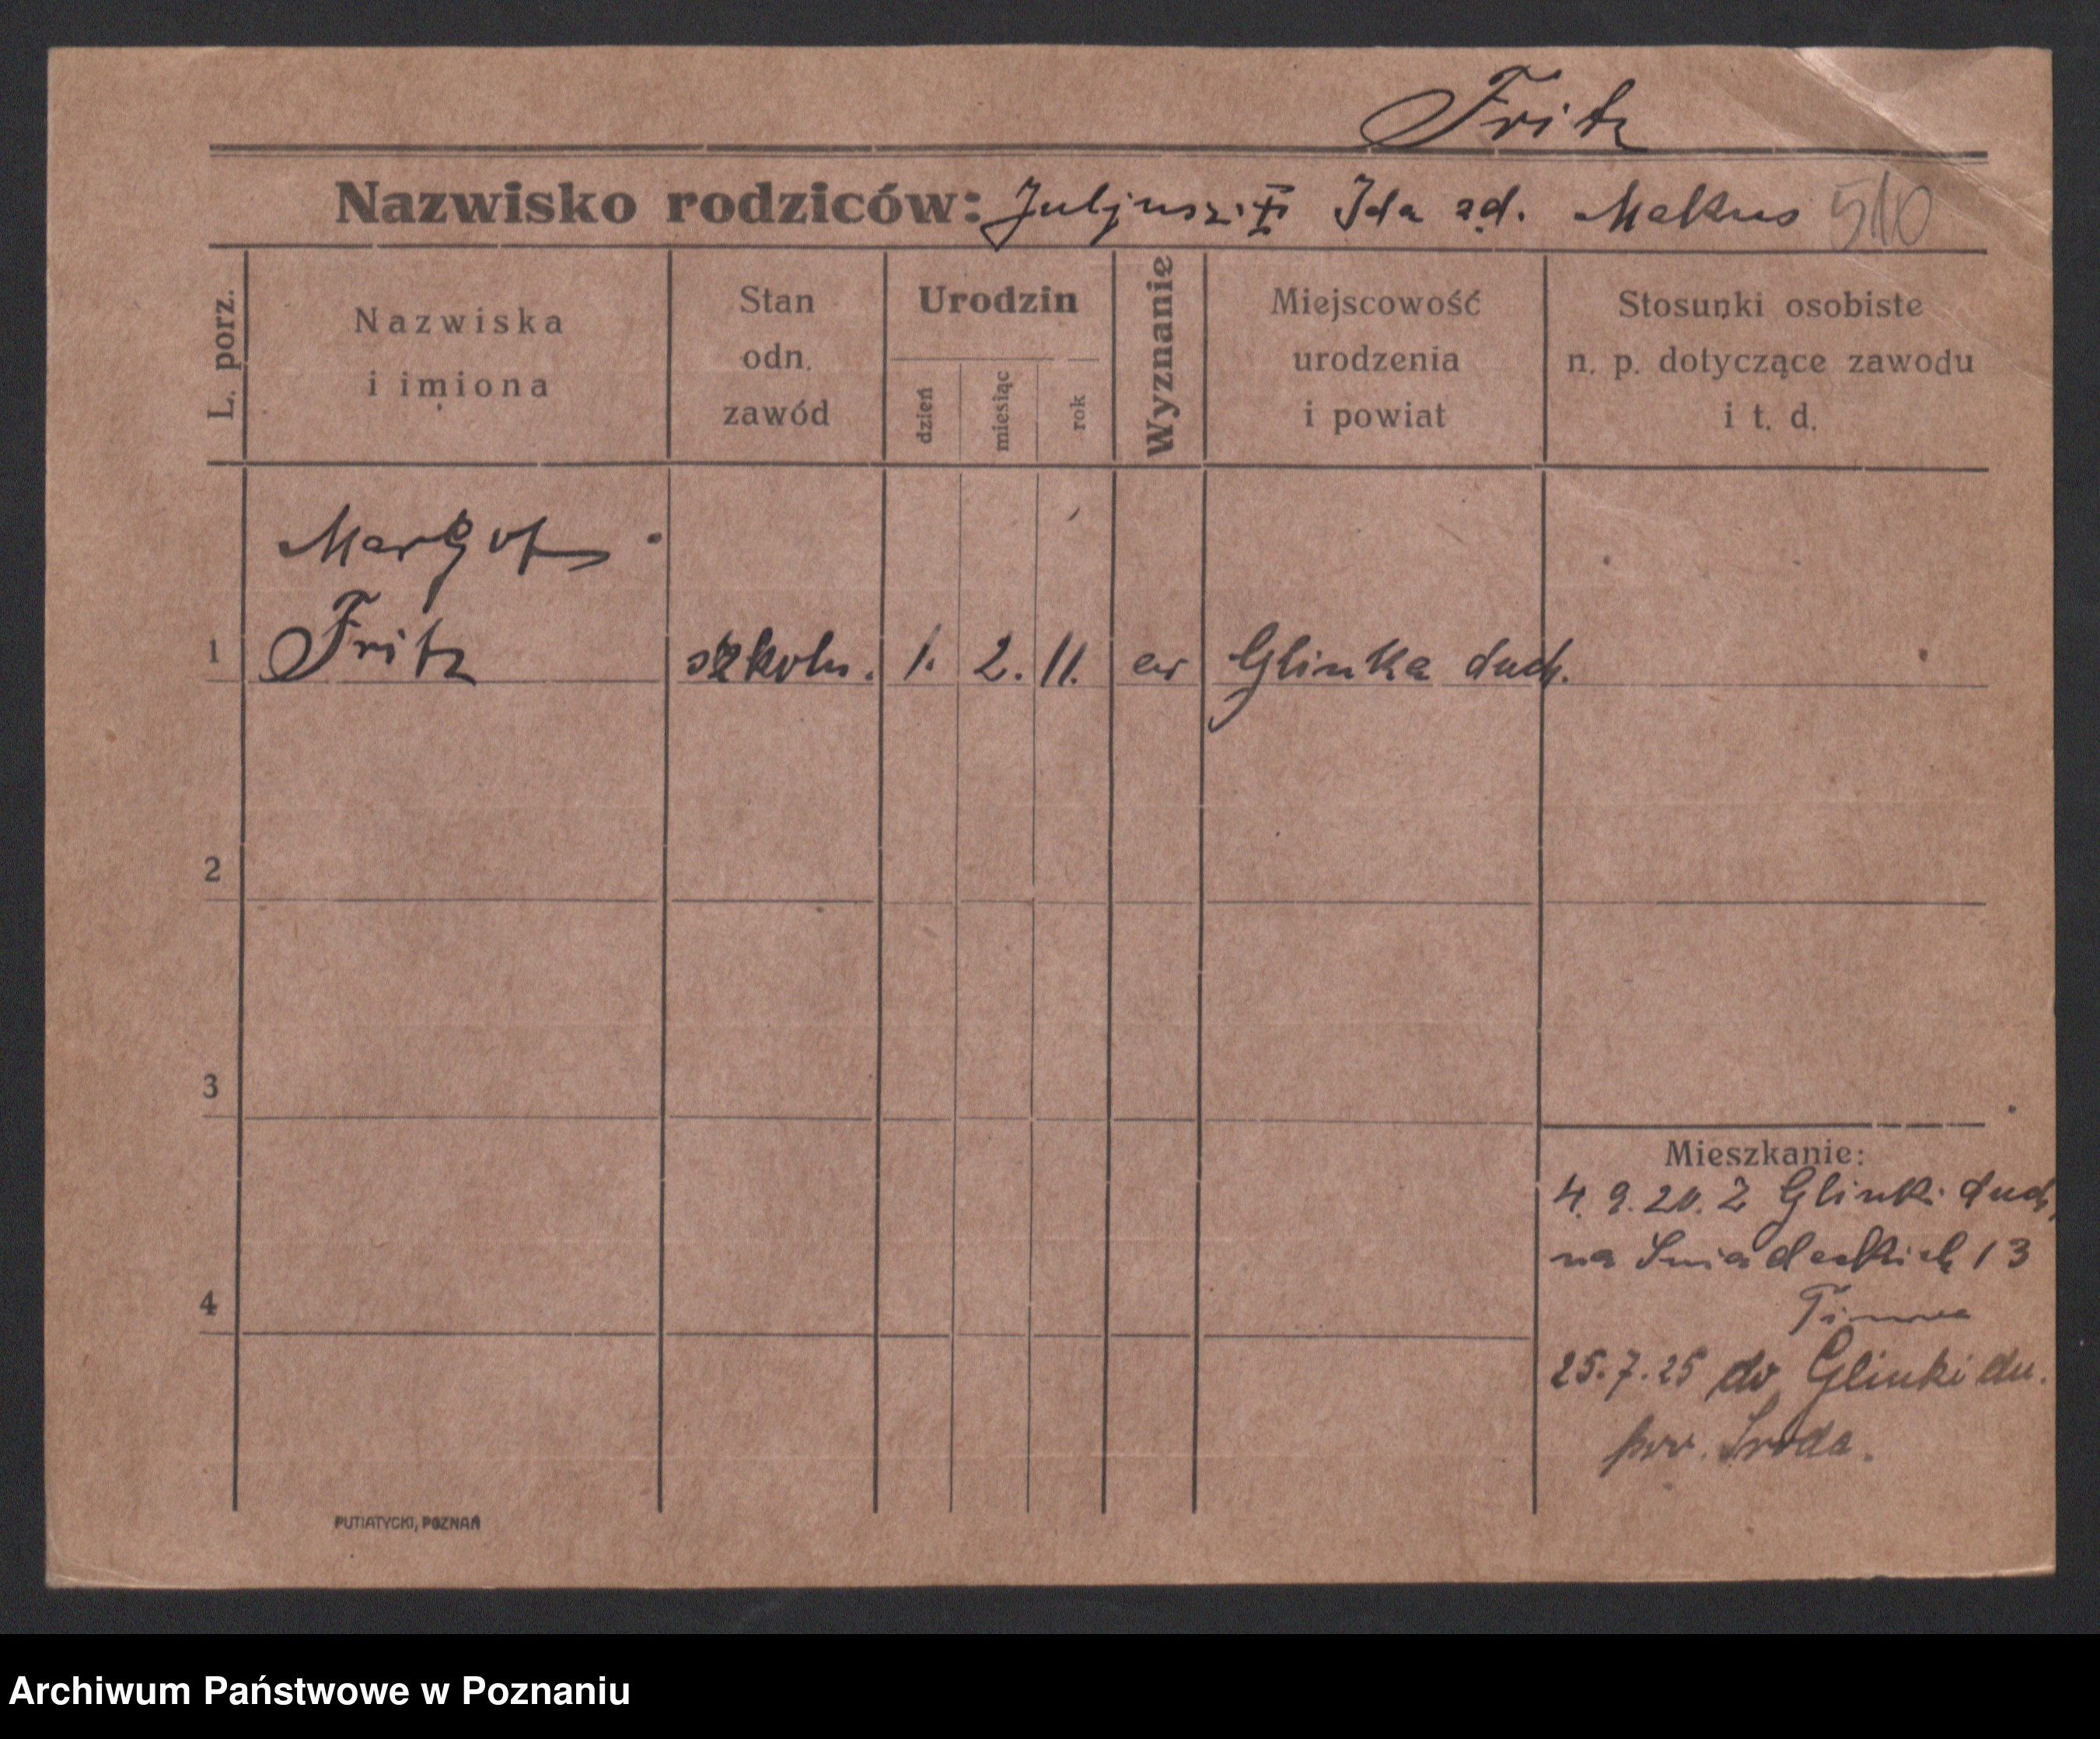 Fritz
Nazwisko rodziców: Juljusz i Ida zd. Makus 510
L. porz.
Nazwiska
i imiona
Stan
odn.
zawód
Urodzin
dzień
miesiąc
rok
Wyznanie
Miejscowość
urodzenia
i powiat
Stosunki osobiste
n. p. dotyczące zawodu
i t. d.
Margot
1 Fritz szkoln. 1. 2. 11. ew Glinka duch.
2
3
4
Mieszkanie:
4. 9. 20. z Glinki duch.
na Sniadeckich 13
25.7.25 do Glinki du.
pow. Sroda.
PUTIATYCKI, POZNAŃ
Archiwum Państwowe w Poznaniu